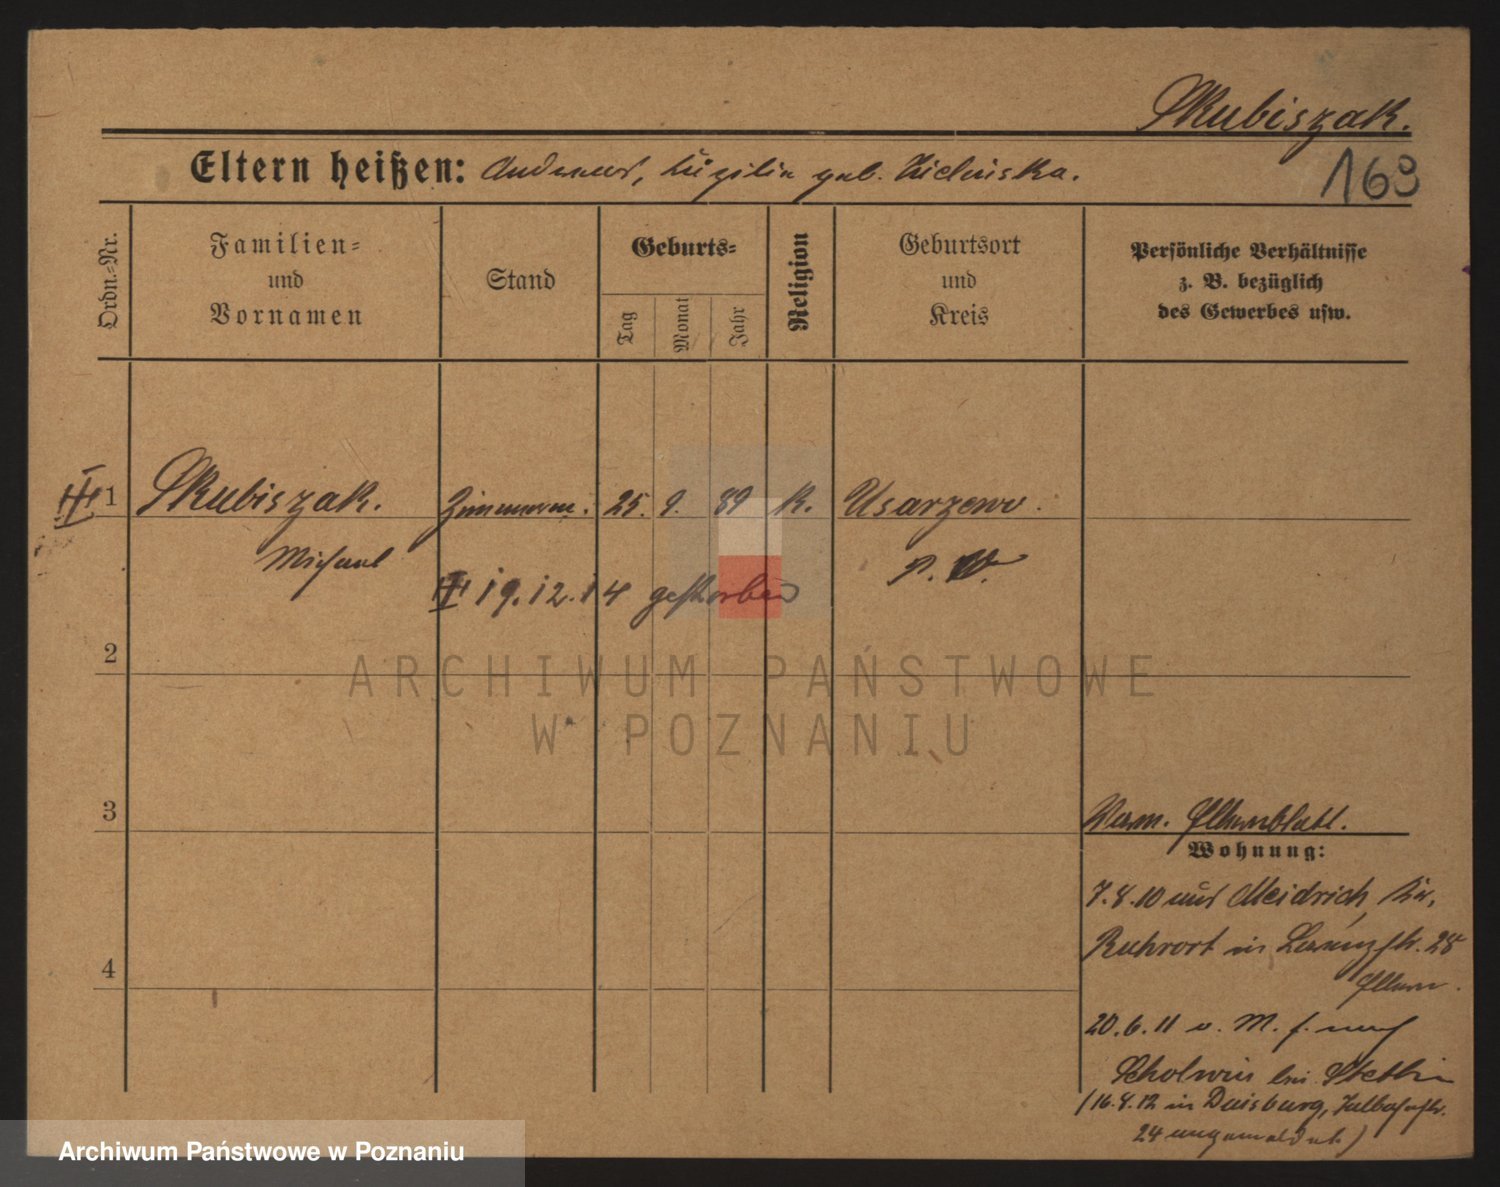 Skubiszak.
Eltern heißen: Andreas, Cäzilia geb. Zielinska.
163
Ordn.-Nr.
Familien-
und
Vornamen
Stand
Geburts-
Tag
Monat
Jahr
Religion
Geburtsort
und
Kreis
Persönliche Verhältnisse
z. B. bezüglich
des Gewerbes usw.
1 Skubiszak. Zimmerm. 25. 9. 89 K. Usarzewo.
Michael
19.12.14 gestorben
P.
2
ARCHIWUM PAŃSTWOWE
W POZNANIU
3
Elternblatt.
Wohnung:
7.8.10 nach Meidrich, Kr.
Ruhrort in 28
Eltern.
20.6.11 v. M. f. nach
Scholwin bei Stettin
(16.8.12 in Duisburg,
24 angemeldet.)
4
Archiwum Państwowe w Poznaniu